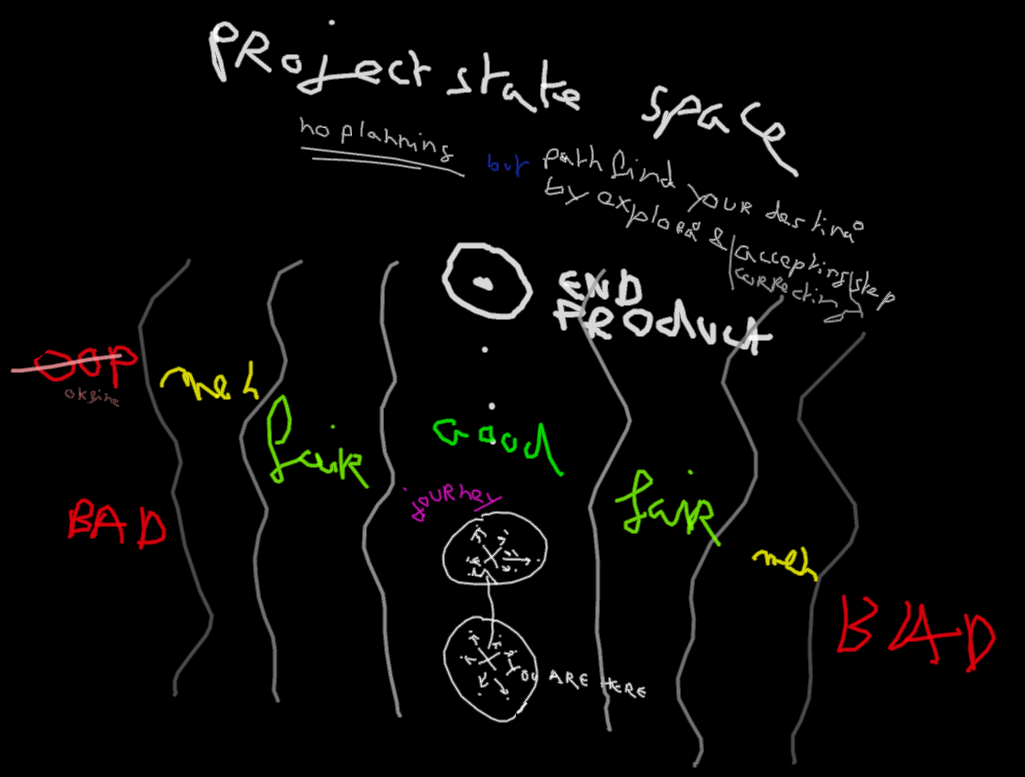 PROject state space
no planning but path find youR destina°
by explora° & accepting/step
correcting
END
PRoduct
OOP
meh
fair
Good
jouRney
BAD
faiR
meh
BAD
You ARE HERE